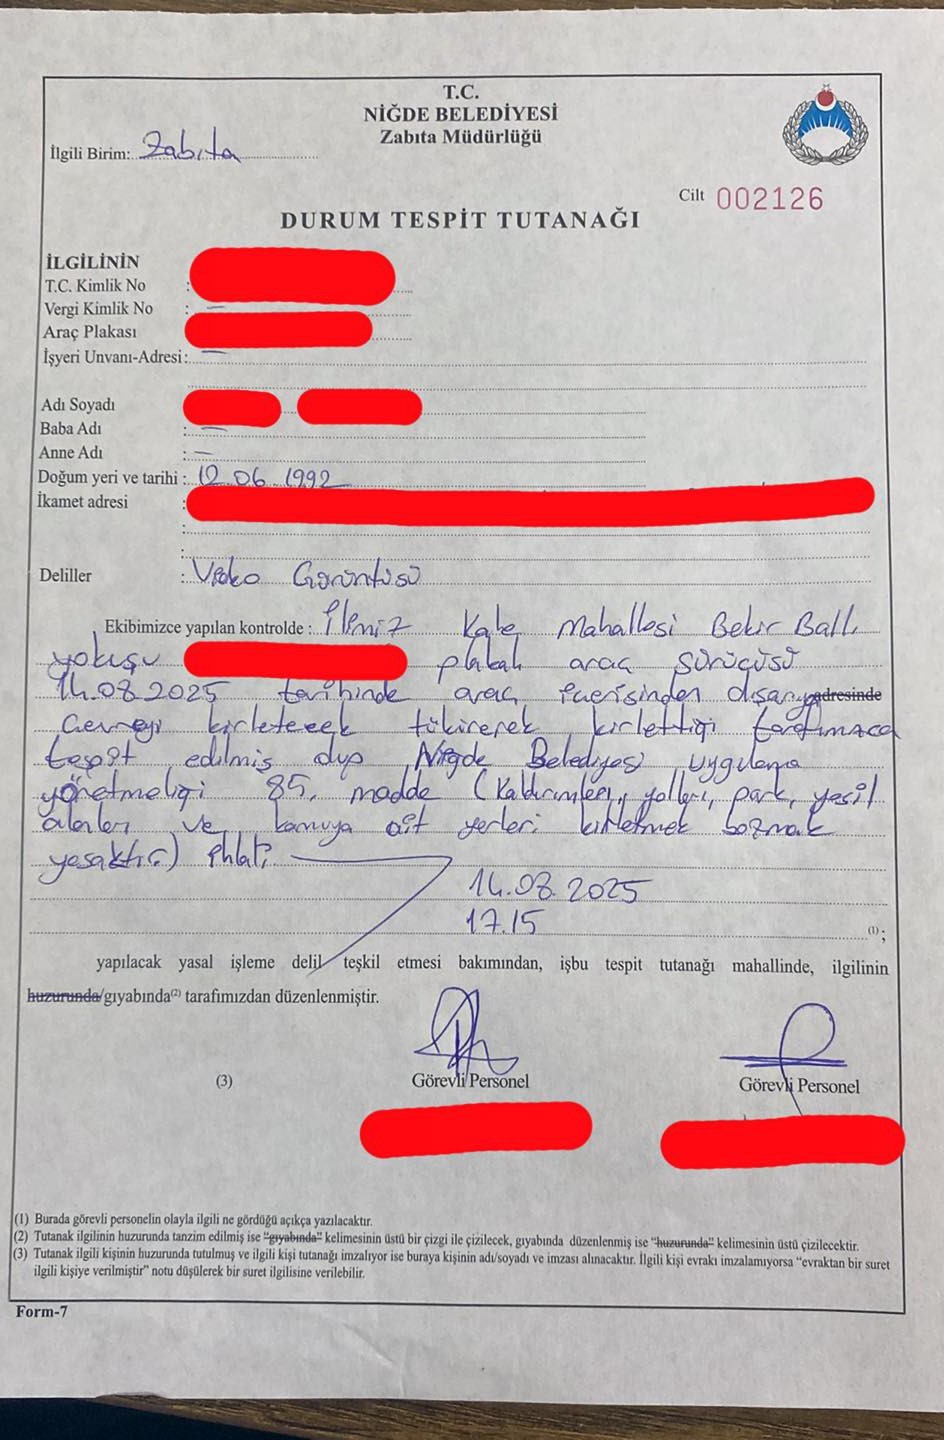 T.C.
NİĞDE BELEDİYESİ
Zabıta Müdürlüğü
İlgili Birim: Zabıta
Cilt 002126
DURUM TESPİT TUTANAĞI
İLGİLİNİN
T.C. Kimlik No :
Vergi Kimlik No : —
Araç Plakası :
İşyeri Unvanı-Adresi: —
Adı Soyadı
Baba Adı : —
Anne Adı : —
Doğum yeri ve tarihi : 12.06.1992
İkamet adresi :
:
:
Deliller : Video Görüntüsü
Ekibimizce yapılan kontrolde : İlimiz Kale Mahallesi Bekir Ballı
yokuşu plakalı araç sürücüsü
14.08.2025 tarihinde araç içerisinden dışarıya adresinde
Çevreyi kirletecek tükürerek kirlettiği tarafımızca
tespit edilmiş olup Niğde Belediyesi uygulama
yönetmeliği 85. madde (Kaldırımları, yolları, park, yeşil
alanları ve kamuya ait yerleri kirletmek bozmak
yasaktır.) ihlali
14.08.2025
17.15
(1) ;
yapılacak yasal işleme delil teşkil etmesi bakımından, işbu tespit tutanağı mahallinde, ilgilinin
huzurunda/gıyabında(2) tarafımızdan düzenlenmiştir.
(3) Görevli Personel Görevli Personel
(1) Burada görevli personelin olayla ilgili ne gördüğü açıkça yazılacaktır.
(2) Tutanak ilgilinin huzurunda tanzim edilmiş ise "gıyabında" kelimesinin üstü bir çizgi ile çizilecek, gıyabında düzenlenmiş ise "huzurunda" kelimesinin üstü çizilecektir.
(3) Tutanak ilgili kişinin huzurunda tutulmuş ve ilgili kişi tutanağı imzalıyor ise buraya kişinin adı/soyadı ve imzası alınacaktır. İlgili kişi evrakı imzalamıyorsa "evraktan bir suret
ilgili kişiye verilmiştir" notu düşülerek bir suret ilgilisine verilebilir.
Form-7